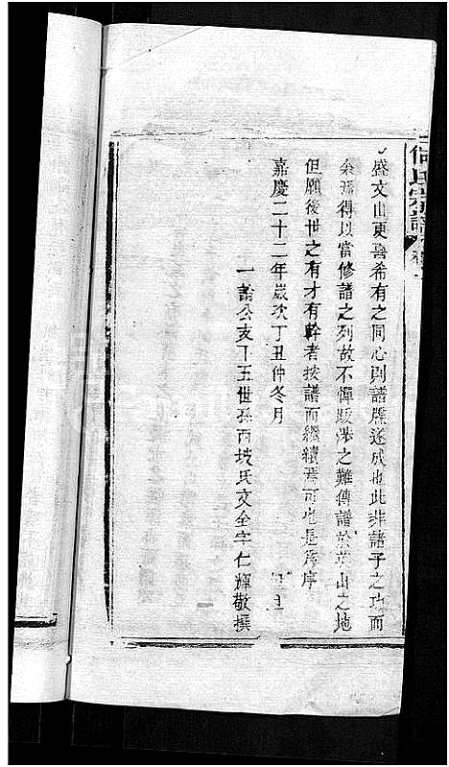 何氏宗譜
盛文山更喜希有之同心則譜牒遂成也此非諸子之功而
余孫得以當修譜之列故不憚跋涉之難傳譜於英山之地
但願後世之有才有幹者按譜而繼續焉可也是為序
嘉慶二十二年歲次丁丑仲冬月
一諭公支下五世孫西坡氏文全字仁輝敬撰